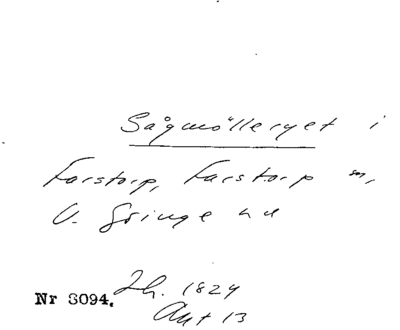 Sågmölleryet i
Farstorp, Farstorp sn,
V. Göinge hd
Jh. 1824
Nr 3094.
Akt 13